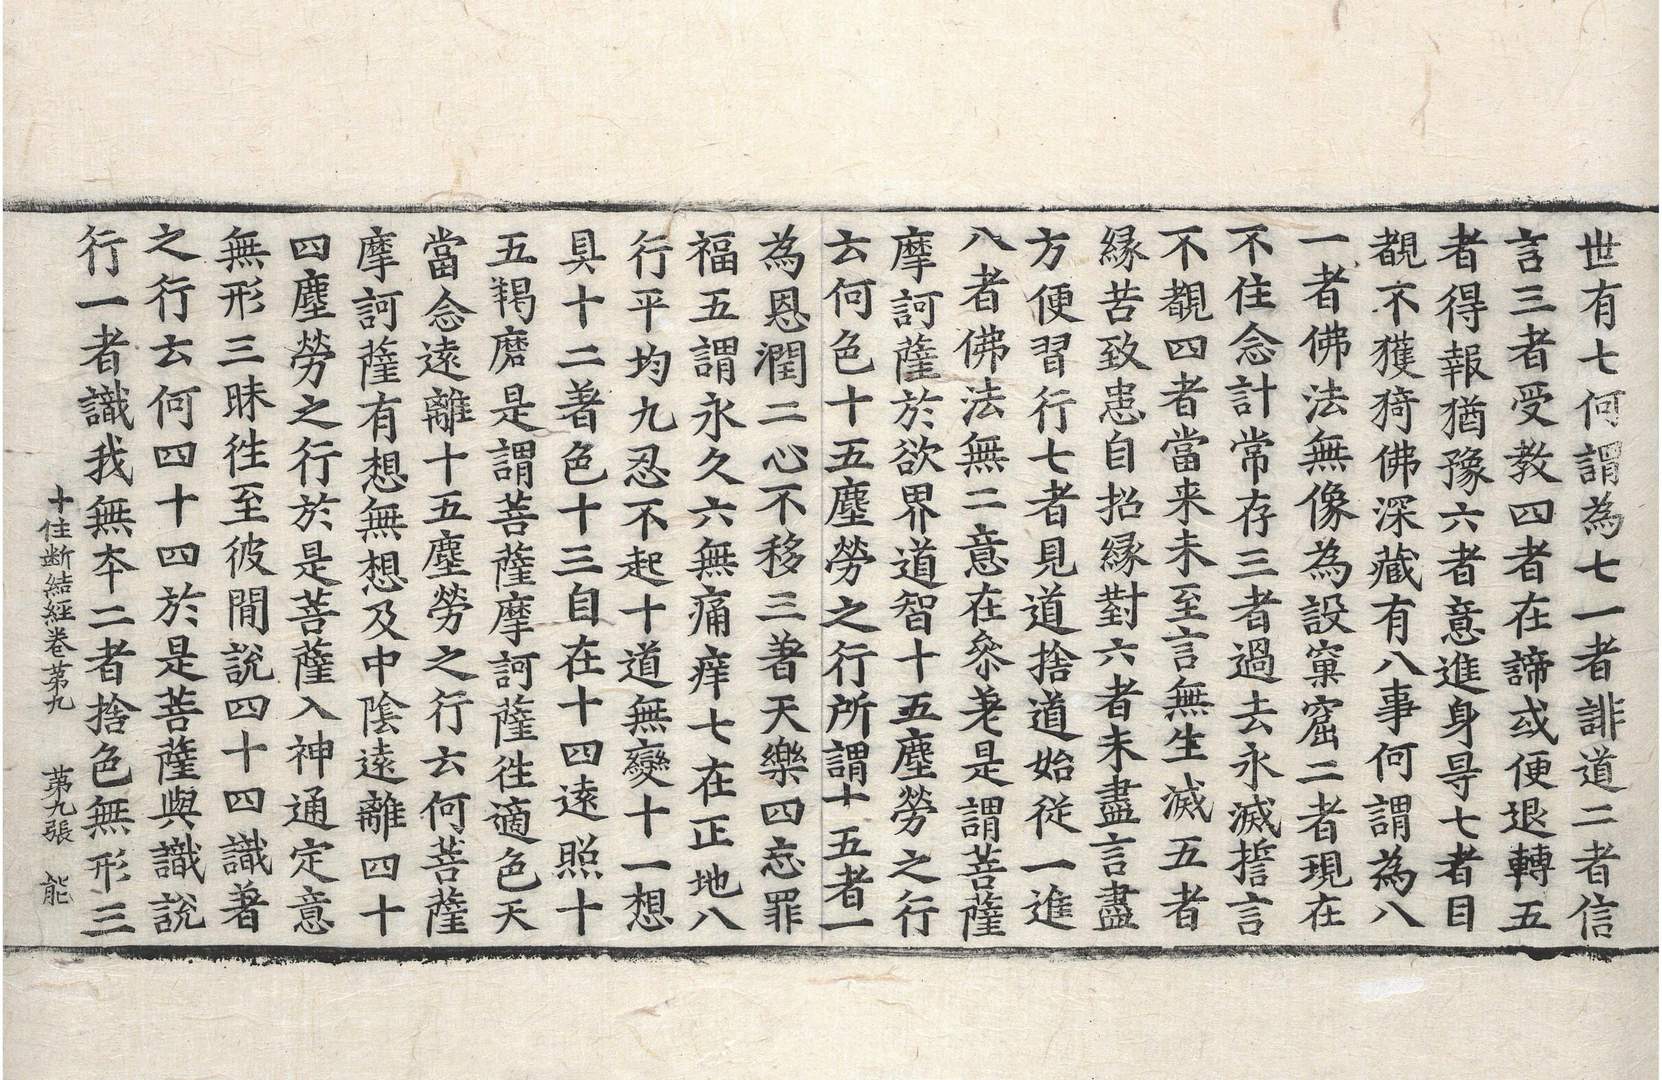 世有七何謂為七一者誹道二者信
言三者受教四者在諦或便退轉五
者得報猶豫六者意進身㝵七者目
覩不獲猗佛深藏有八事何謂為八
一者佛法無像為設窠窟二者現在
不住念計常存三者過去永滅誓言
不覩四者當来未至言無生滅五者
縁苦致患自招縁對六者未盡言盡
方便習行七者見道捨道始從一進
八者佛法無二意在叅差是謂菩薩
摩訶薩於欲界道智十五塵勞之行
云何色十五塵勞之行所謂十五者一
為恩潤二心不移三著天樂四忘罪
福五謂永久六無痛痒七在正地八
行平均九忍不起十道無變十一想
具十二著色十三自在十四遠照十
五羯磨是謂菩薩摩訶薩往適色天
當念遠離十五塵勞之行云何菩薩
摩訶薩有想無想及中陰遠離四十
四塵勞之行於是菩薩入神通定意
無形三昧往至彼間說四十四識著
之行云何四十四於是菩薩與識說
行一者識我無夲二者捨色無形三
十住斷結經卷第九 第九張 能